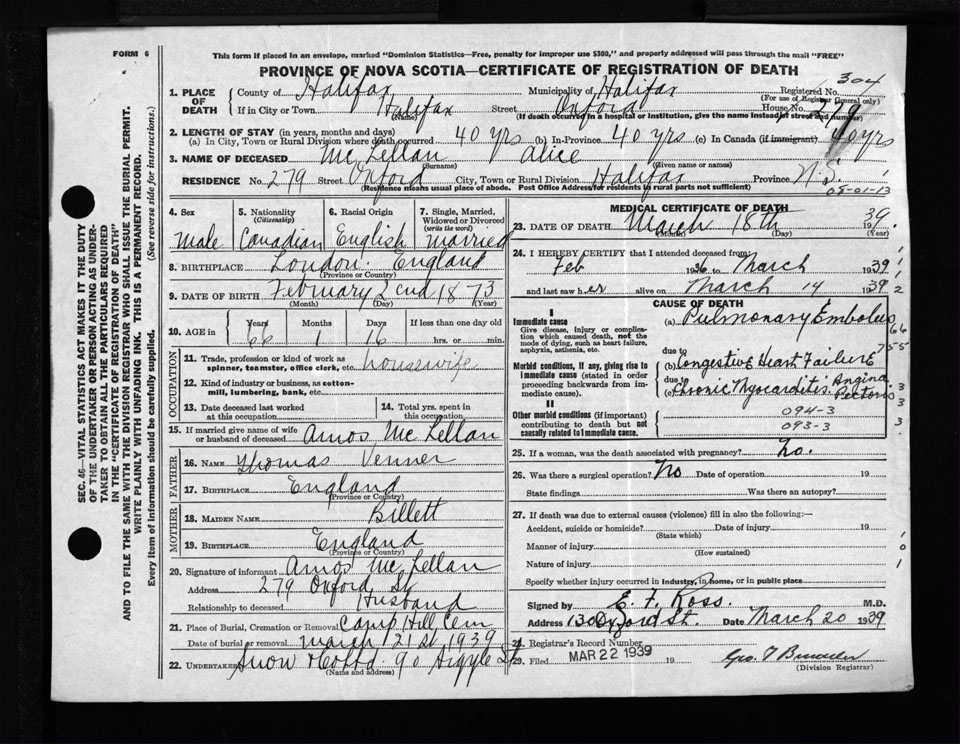 FORM 6
This form if placed in an envelope, marked "Dominion Statistics—Free, penalty for improper use $300," and properly addressed will pass through the mail "FREE"
PROVINCE OF NOVA SCOTIA—CERTIFICATE OF REGISTRATION OF DEATH
304
1. PLACE OF DEATH
County of Halifax Municipality of Halifax Registered No.
(For use of Registrar General only)
If in City or Town Halifax Street Oxford House No. 279
(Name) (If death occurred in a hospital or institution, give the name instead of street and number)
2. LENGTH OF STAY (in years, months and days)
(a) In City, Town or Rural Division where death occurred 40 yrs (b) In-Province 40 yrs (c) In Canada (if immigrant) 40 yrs
3. NAME OF DECEASED Mc Lellan Alice
(Surname) (Given name or names)
RESIDENCE No. 279 Street Oxford City, Town or Rural Division Halifax Province N.S.
(Residence means usual place of abode. Post Office Address for residents in rural parts not sufficient)
08-01-13
4. Sex
Male
5. Nationality
(Citizenship)
Canadian
6. Racial Origin
English
7. Single, Married, Widowed or Divorced
(write the word)
married
8. BIRTHPLACE London. England
(Province or Country)
9. DATE OF BIRTH February 2cnd 1873
(Month) (Day) (Year)
10. AGE in Years Months Days If less than one day old
66 1 16 hrs. or min.
OCCUPATION
11. Trade, profession or kind of work as spinner, teamster, office clerk, etc. housewife
12. Kind of industry or business, as cotton-mill, lumbering, bank, etc.
13. Date deceased last worked at this occupation
14. Total yrs. spent in this occupation
15. If married give name of wife or husband of deceased Amos Mc Lellan
FATHER
16. NAME Thomas Venner
17. BIRTHPLACE England
(Province or Country)
MOTHER
18. MAIDEN NAME Billett
19. BIRTHPLACE England
(Province or Country)
20. Signature of informant Amos Mc Lellan
Address 279 Oxford St
Relationship to deceased Husband
21. Place of Burial, Cremation or Removal Camp Hill Cem
Date of burial or removal march 21st 1939
22. Undertaker Snow 90 Argyle St
(Name and address)
MEDICAL CERTIFICATE OF DEATH
23. DATE OF DEATH March 18th 1939.
(Month) (Day) (Year)
24. I HEREBY CERTIFY that I attended deceased from
Feb 1936 to March 1939
and last saw her alive on March 14 1939
CAUSE OF DEATH
I
Immediate cause
Give disease, injury or complication which caused death, not the mode of dying, such as heart failure, asphyxia, asthenia, etc.
(a) Pulmonary Embolus
due to
Morbid conditions, if any, giving rise to immediate cause (stated in order proceeding backwards from immediate cause).
(b) Congestive Heart Failure
due to
(c) Chronic Myocarditis. Angina Pectoris
II
Other morbid conditions (if important) contributing to death but not causally related to immediate cause.
094-3
093-3
25. If a woman, was the death associated with pregnancy? No.
26. Was there a surgical operation? No Date of operation 19
State findings Was there an autopsy?
27. If death was due to external causes (violence) fill in also the following:—
Accident, suicide or homicide? Date of injury 19
(State which)
Manner of injury
(How sustained)
Nature of injury
Specify whether injury occurred in industry, in home, or in public place
Signed by E. F. Ross. M.D.
Address 130 Oxford St. Date March 20 1939
28. Registrar's Record Number
29. Filed MAR 22 1939 19
(Division Registrar)
SEC. 46—VITAL STATISTICS ACT MAKES IT THE DUTY OF THE UNDERTAKER OR PERSON ACTING AS UNDERTAKER TO OBTAIN ALL THE PARTICULARS REQUIRED IN THE "CERTIFICATE OF REGISTRATION OF DEATH" AND TO FILE THE SAME WITH THE DIVISION REGISTRAR WHO SHALL ISSUE THE BURIAL PERMIT.
WRITE PLAINLY WITH UNFADING INK. THIS IS A PERMANENT RECORD.
Every item of information should be carefully supplied. (See reverse side for instructions.)